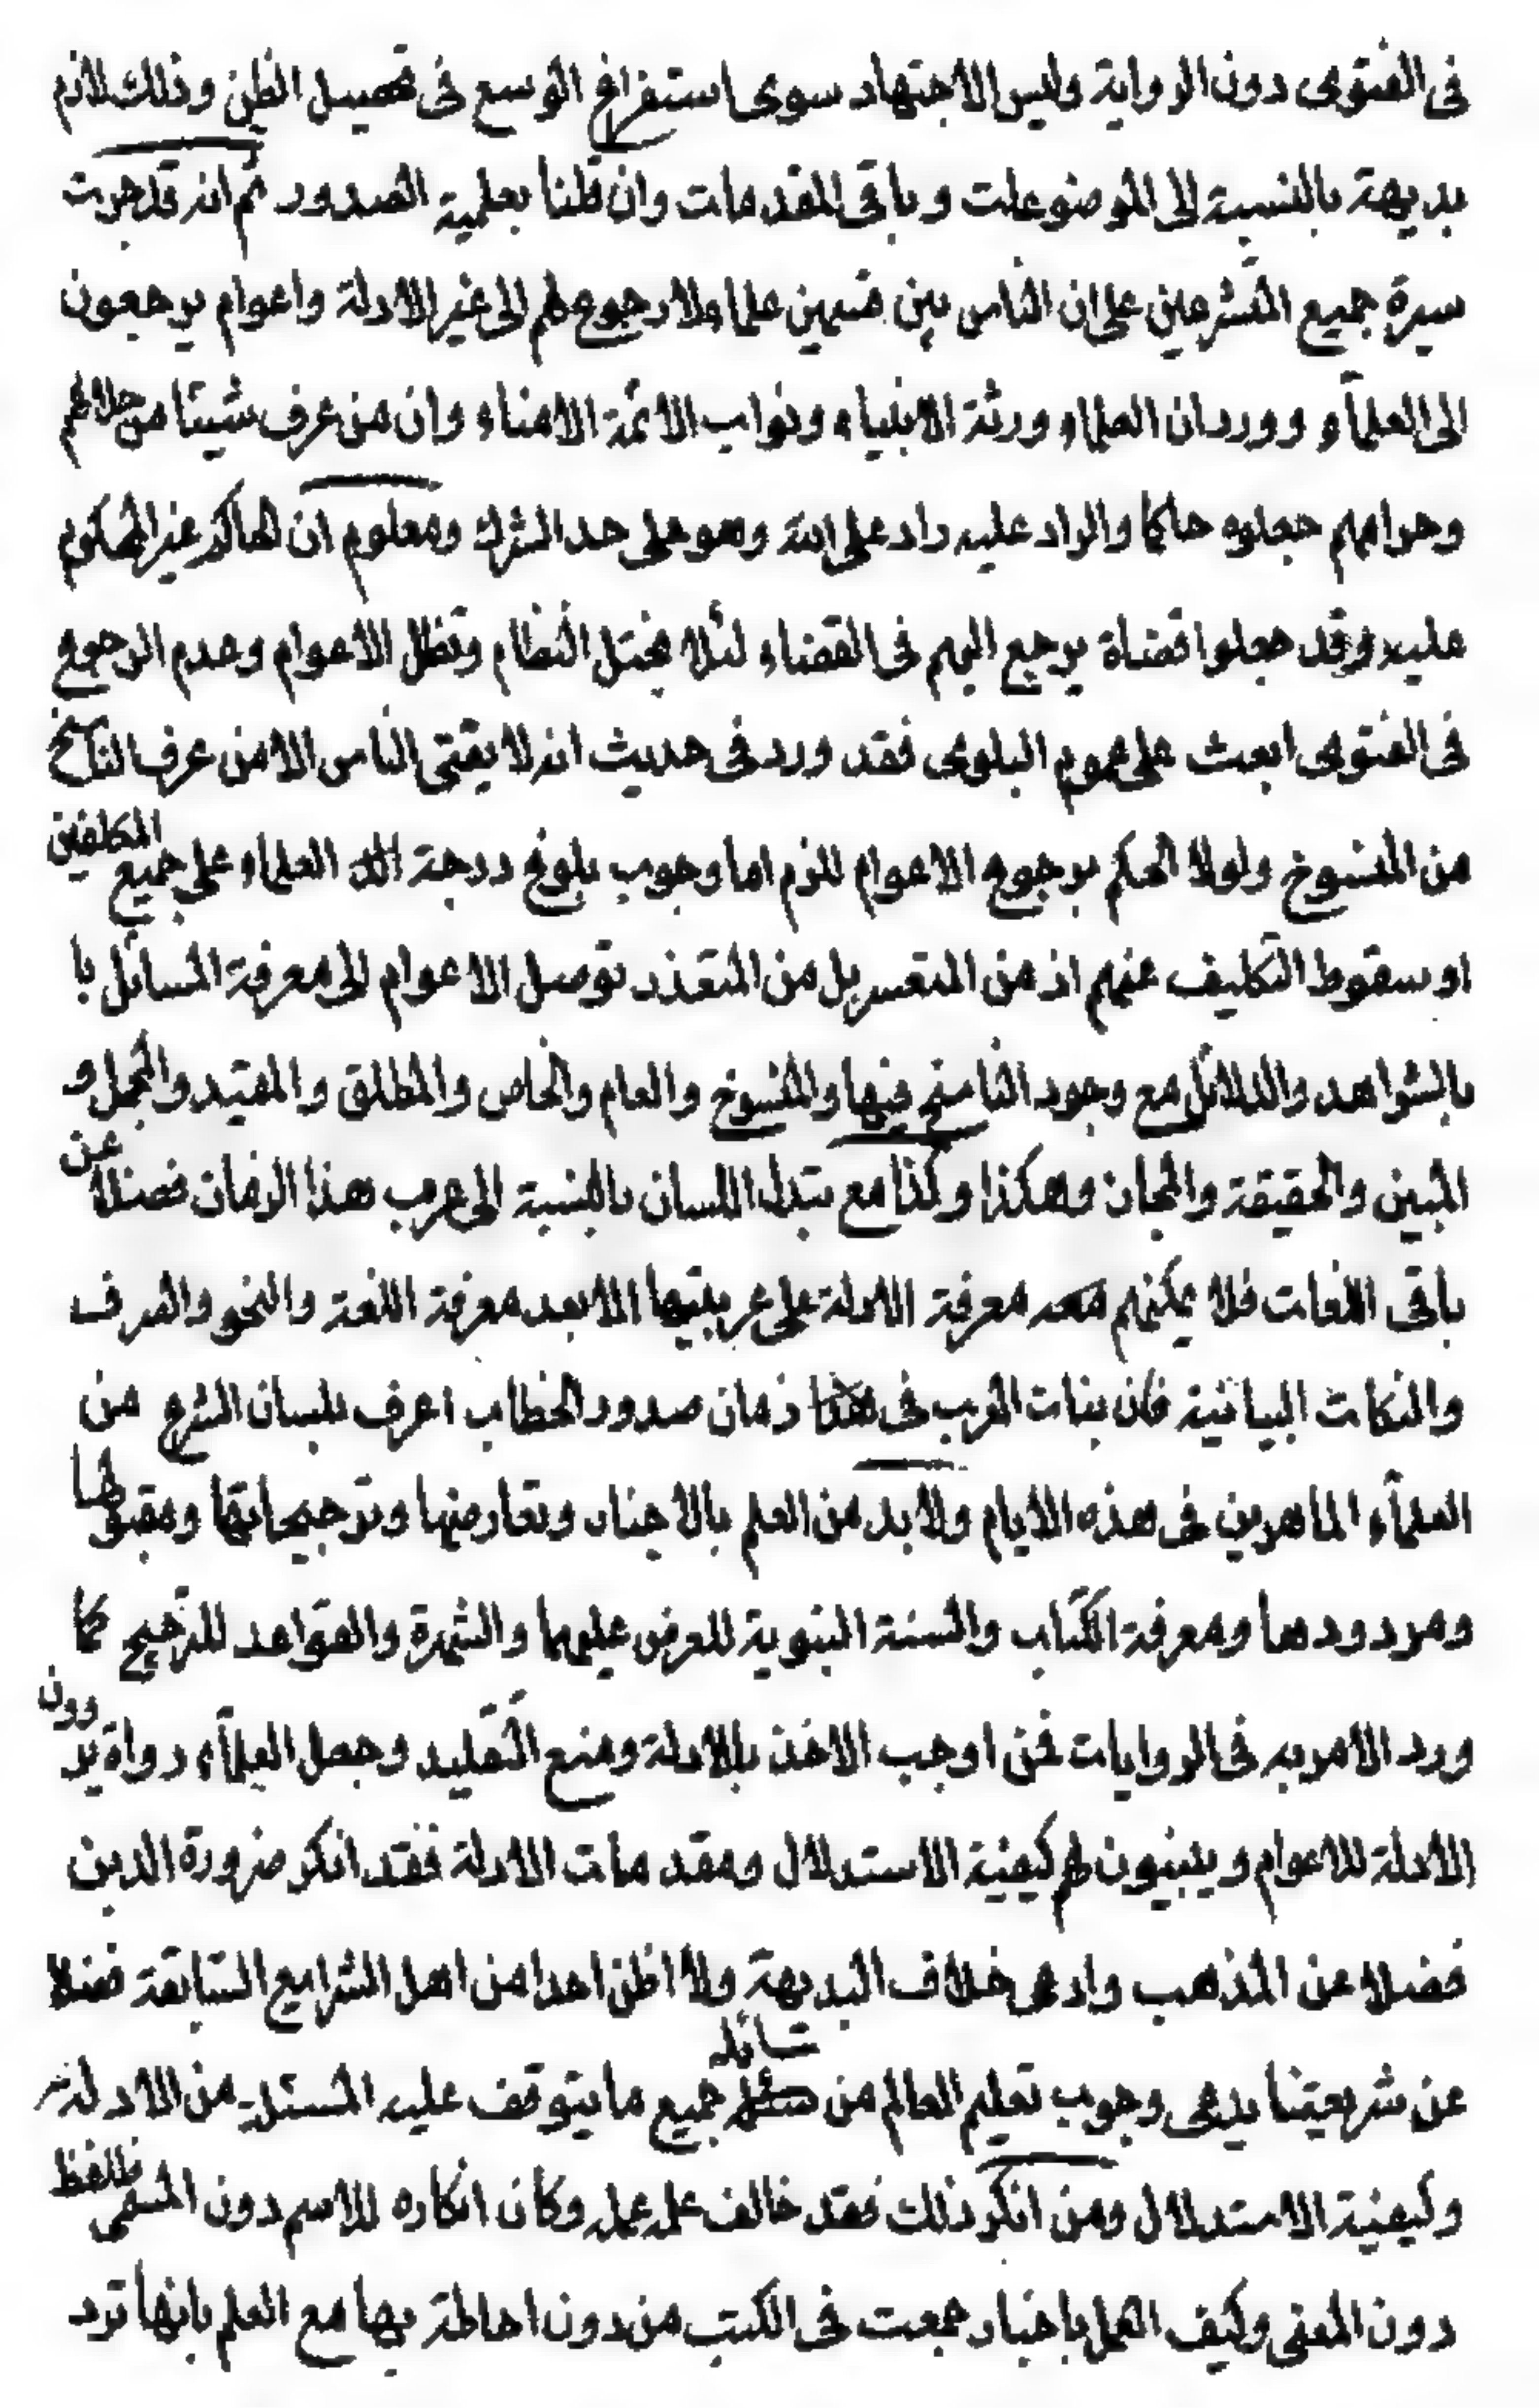 فى الفتوى دون الرواية وليس الاجتهاد سوى استفراغ الوسع فى تحصيل الظن وذلك لازم
بديهة بالنسبة الى الموضوعات وباقى المقدمات وان قلنا بعلمية الصدور ثم انه قد جرت
سيرة جميع المتشرعين على ان الناس بين قسمين علماء ولا رجوع لهم الى غير الادلة واعوام يرجعون
الى العلمآء وورد ان العلماء ورثة الانبياء ونواب الائمة الامناء وان من عرف شيئا من حلالهم
وحرامهم جعلوه حاكما والراد عليه راد على الله وهو على حد الشرك ومعلوم ان الحاكم غير المحكوم
عليه وقد جعلوا قضاة يرجع اليهم فى القضاء لئلا يختل النظام وتظل الاعوام وعدم الرجوع
فى الفتوى ابعث على عموم البلوى فقد ورد فى حديث انه لا يفتى الناس الا من عرف الناسخ
من المنسوخ ولولا الحكم برجوع الاعوام للزم اما وجوب بلوغ درجة العلماء على جميع المكلفين
او سقوط التكليف عنهم اذ من المتعسر بل من المتعذر توصل الاعوام الى معرفة المسائل با
بالشواهد والدلائل مع وجود الناسخ فيها والمنسوخ والعام والخاص والمطلق والمقيد والمجمل و
المبين والحقيقة والمجاز وهكذا وكذا مع تبدل اللسان بالنسبة الى عرب هذا الزمان فضلا عن
باقى اللغات فلا يمكنهم معه معرفة الادلة على عربيتها الا بعد معرفة اللغة والنحو والصرف
والنكات البيانية فان بنات العرب فى زمان صدور الخطاب اعرف بلسان الشرع من
العلمآء الماهرين فى هذه الايام ولا بد من العلم بالاخبار وتعارضها وترجيحاتها ومقبولها
ومردودها ومعرفة الكتاب والسنة النبوية للعرض عليهما والشهرة والقواعد للترجيح كما
ورد الامر به فى الروايات فمن اوجب الاخذ بالادلة ومنع التقليد وجعل العلمآء رواة يروون
الادلة للاعوام ويبينون لهم كيفية الاستدلال ومقدمات الادلة فقد انكر ضرورة الدين
فضلا عن المذهب وادعى خلاف البديهة ولا اظن احدا من اهل الشرايع السابقة فضلا
عن شريعتنا يدعى وجوب تعليم العالم من سائله جميع ما يتوقف عليه المستدل من الادلة
وكيفية الاستدلال ومن انكر ذلك فقد خالف علمه عمله وكان انكاره للاسم دون المسمى فاللفظ
دون المعنى وكيف العمل باخبار جمعت فى الكتب من دون احاطة بها مع العلم بانها ترد